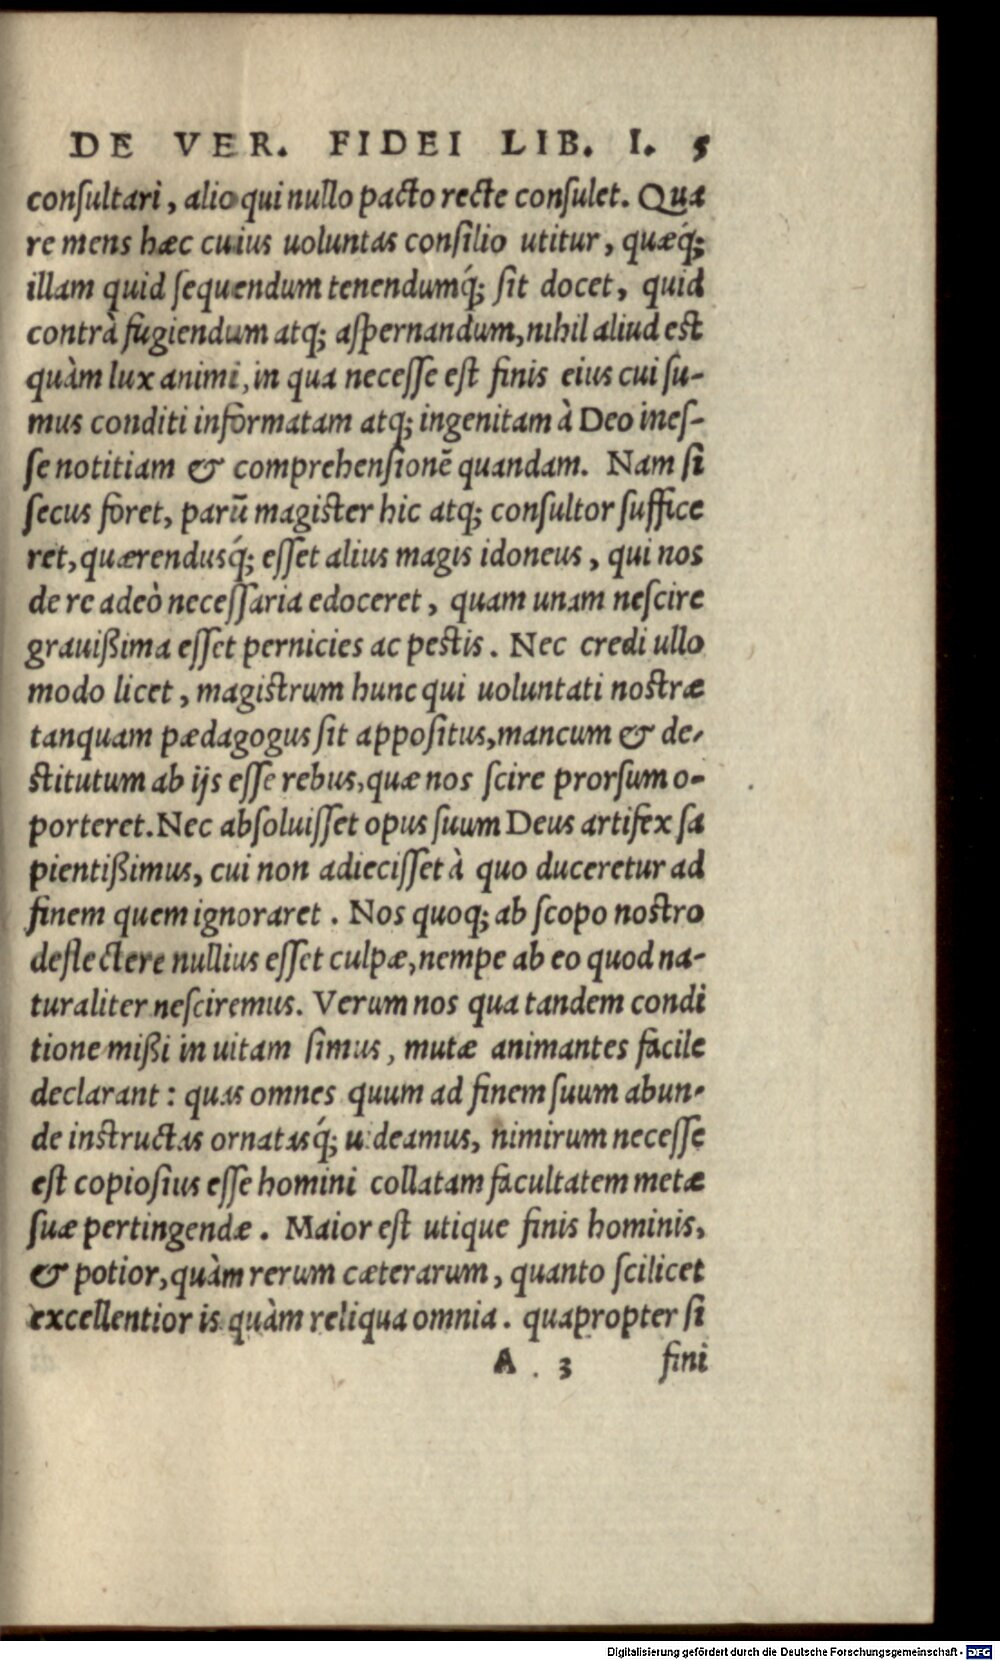 DE VER. FIDEI LIB. I. 5
conſultari, alioqui nullo pacto recte conſulet. Qua
re mens hæc cuius uoluntas conſilio utitur, quæq́;
illam quid ſequendum tenendumq́; ſit docet, quid
contrà fugiendum atq; aſpernandum, nihil aliud est
quàm lux animi, in qua neceſſe eſt finis eius cui ſu-
mus conditi informatam atq; ingenitam à Deo ineſ-
ſe notitiam & comprehenſionē quandam. Nam ſi
ſecus foret, parū magiſter hic atq; conſultor ſuffice
ret, quærendusq́; eſſet alius magis idoneus, qui nos
de re adeò neceſſaria edoceret, quam unam neſcire
grauißima eſſet pernicies ac peſtis. Nec credi ullo
modo licet, magiſtrum hunc qui uoluntati noſtræ
tanquam pædagogus ſit appoſitus, mancum & de-
ſtitutum ab ijs eſſe rebus, quæ nos ſcire prorſum o-
porteret. Nec abſoluiſſet opus ſuum Deus artifex ſa
pientißimus, cui non adieciſſet à quo duceretur ad
finem quem ignoraret. Nos quoq; ab ſcopo noſtro
deflectere nullius eſſet culpæ, nempe ab eo quod na-
turaliter neſciremus. Verum nos qua tandem condi
tione mißi in uitam ſimus, mutæ animantes facile
declarant: quas omnes quum ad finem ſuum abun-
de inſtructas ornatasq́; uideamus, nimirum neceſſe
eſt copioſius eſſe homini collatam facultatem metæ
ſuæ pertingendæ. Maior eſt utique finis hominis,
& potior, quàm rerum cæterarum, quanto ſcilicet
excellentior is quàm reliqua omnia. quapropter ſi
A 3 fini
Digitalisierung gefördert durch die Deutsche Forschungsgemeinschaft - DFG